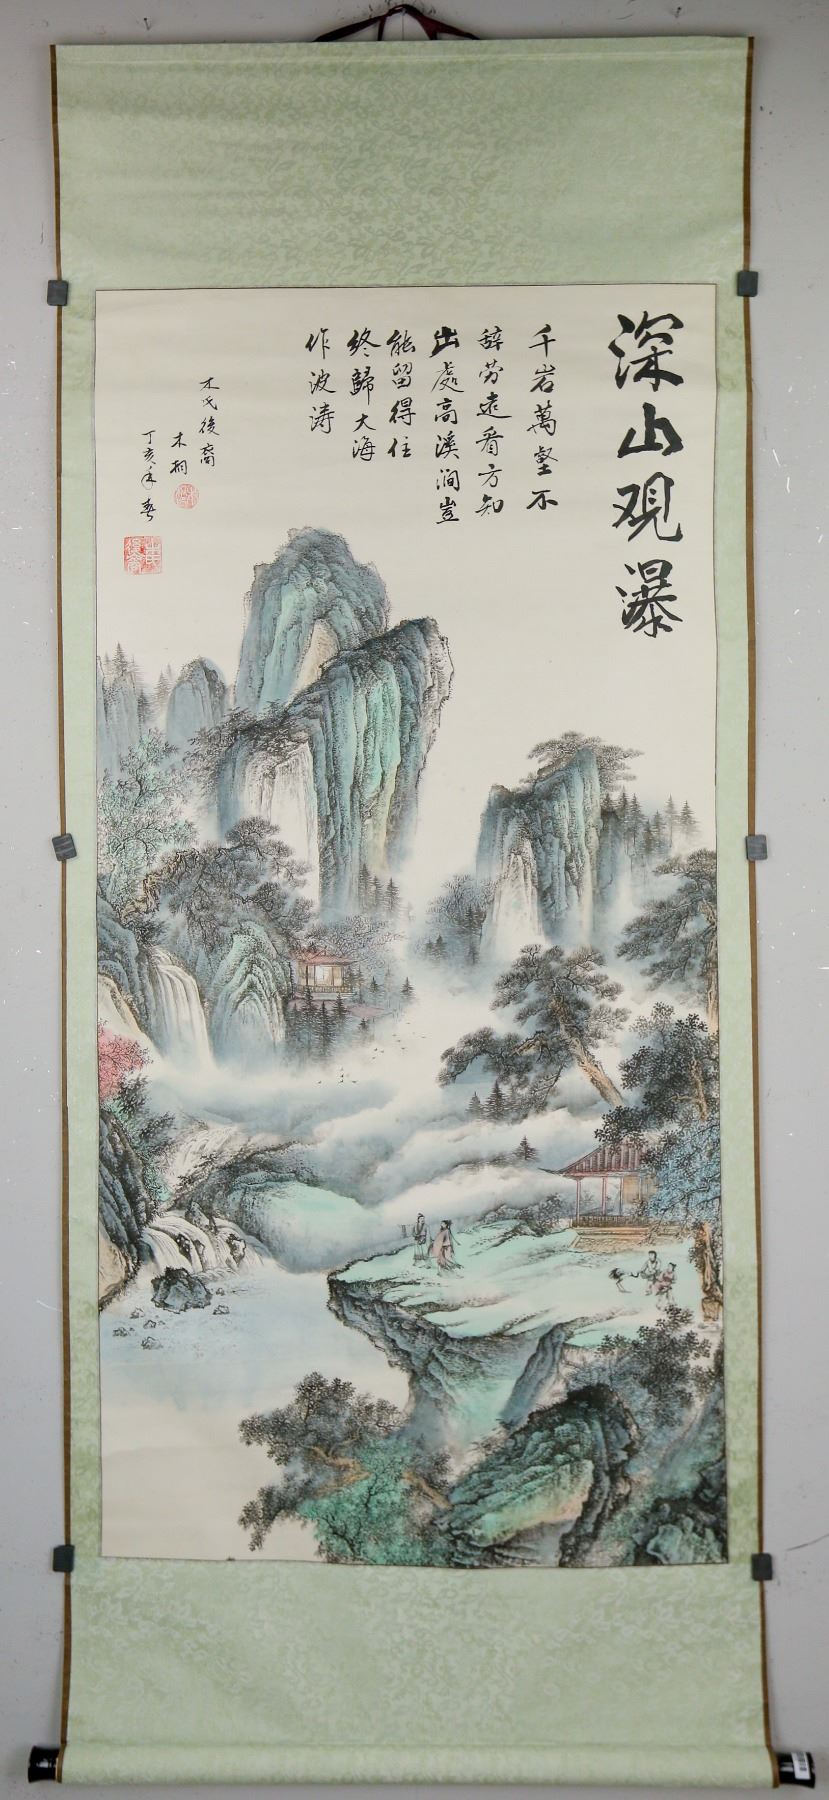 深山观瀑
千岩萬壑不
辞劳遠看方知
出處高溪澗豈
能留得住
終歸大海
作波涛
木氏後裔
木桐
丁亥年春